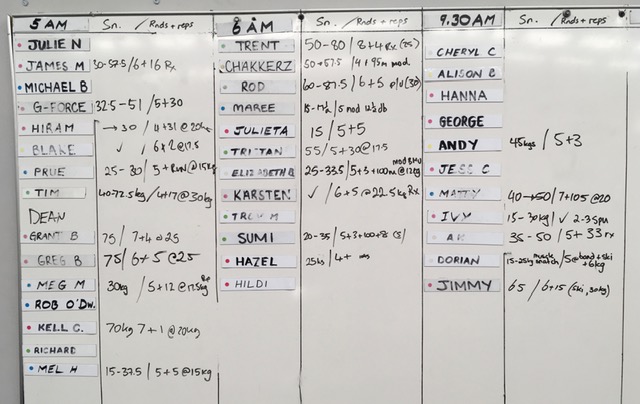 5 AM Sn. / Rnds + reps
JULIE N
JAMES M 30-57.5 / 6+16 Rx
MICHAEL B
G-FORCE 32.5-51 / 5+30
HIRAM → 30 / 4+31 @ 20kg
BLAKE ✓ / 6x2 @ 17.5
PRUE 25-30 / 5+RUN @ 15kg
TIM 40-72.5kg / 4+17 @ 30kg
DEAN
GRANT B 75 / 7+4 @ 25
GREG B 75 / 6+5 @ 25
MEG M 30kg / 5+12 @ 17.5kg
ROB O'DW.
KELL C. 70kg 7+1 @ 20kg
RICHARD
MEL H 15-37.5 / 5+5 @ 15kg
6 AM Sn. / Rnds + reps
TRENT 50-80 / 8+4 Rx (25)
CHAKKERZ 50→57.5 / 4 95m mod
ROD 60-87.5 / 6+5 (30)
MAREE / 5 mod 12½ db
JULIETA 15 / 5+5
TRISTAN 55 / 5+30 @ 17.5
ELIZABETH B 25-33.5 / 5+3+100m @ 12kg
KARSTEN ✓ / 6+5 @ 22.5kg Rx
TROY M
SUMI 20-35 / 5+3+100+8
HAZEL 25kg / 4+
HILDI
9.30 AM Sn. / Rnds + reps
CHERYL C
ALISON B
HANNA
GEORGE
ANDY 45kgs / 5+3
JESS C
MATTY 40→50 / 7+105 @ 20
IVY 15-30kg / ✓ 2-35
35-50 / 5+33 rx
DORIAN 15-25kg muscle snatch / 5 @ band + ski +6kg
JIMMY 65 / 6+15 (ski, 30kg)